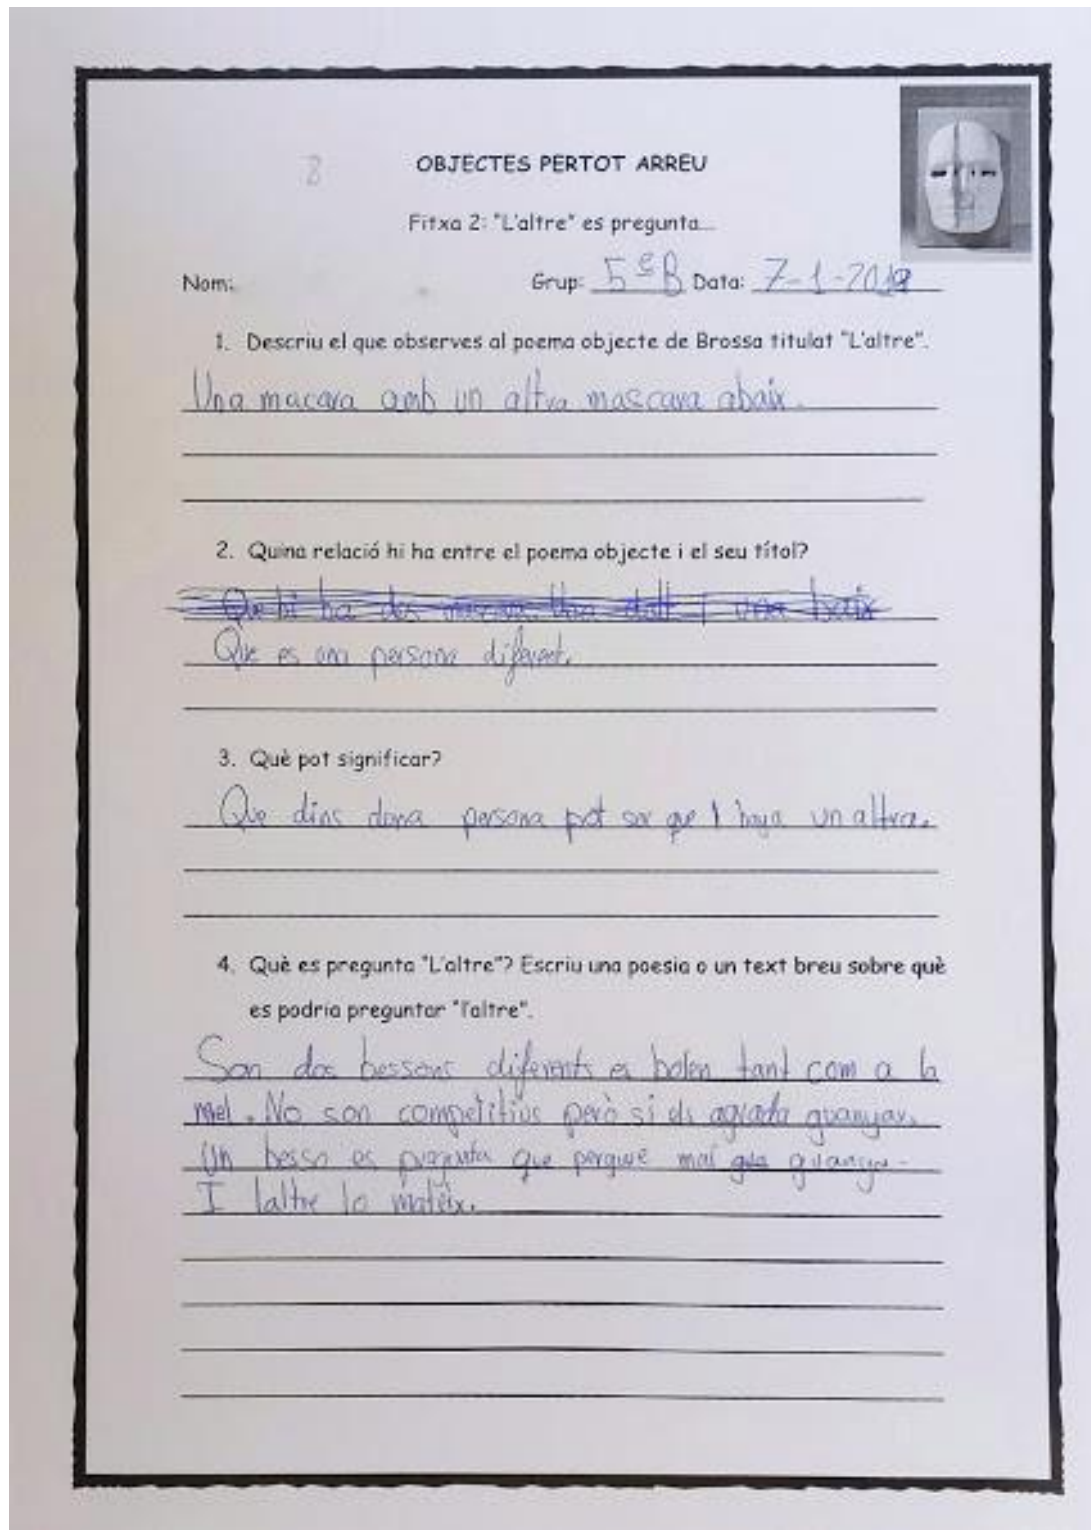 8
OBJECTES PERTOT ARREU
Fitxa 2: "L'altre" es pregunta...
Nom: Grup: 5 è B Data: 7-1-2019
1. Descriu el que observes al poema objecte de Brossa titulat "L'altre".
Una macara amb un altra mascara abaix.
2. Quina relació hi ha entre el poema objecte i el seu títol?
Que hi ha dos mascara Una dalt i una baix
Que es una persona diferent.
3. Què pot significar?
Que dins dona persona pot ser que i haya un altra.
4. Què es pregunta "L'altre"? Escriu una poesia o un text breu sobre què
es podria preguntar "l'altre".
Son dos bessons diferents es bolen tant com a la
mel. No son competitius però si els agrada guanyar.
Un besso es pregunta que perque mai guanya.
I laltre lo mateix.